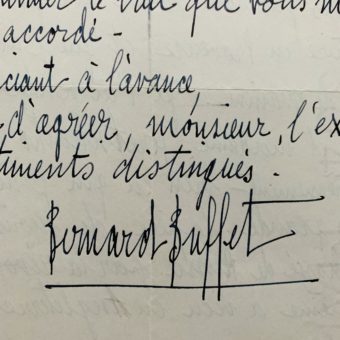 le que vous m
accordé -
ciant à l'avance,
d'agréer, monsieur, l'ex
timents distingués.
Bernard Buffet